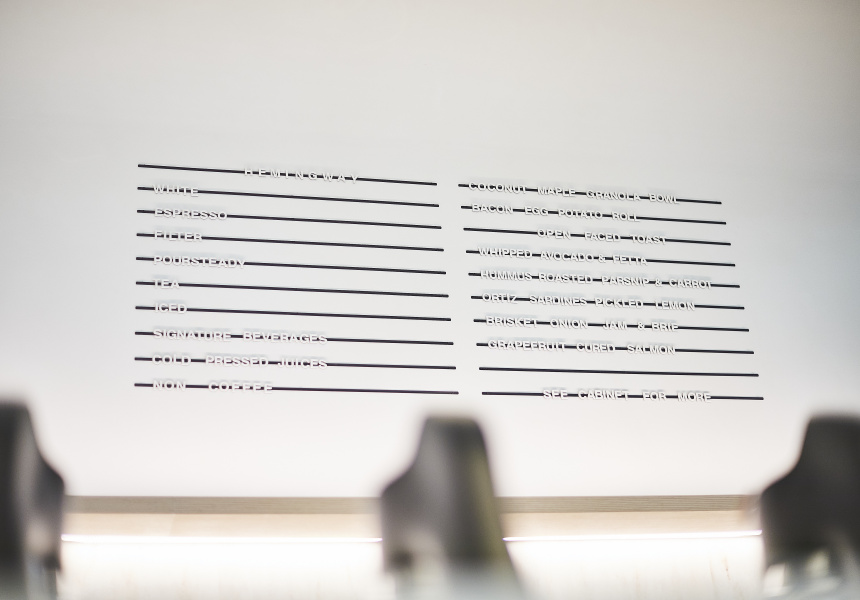 HEMINGWAY
WHITE
ESPRESSO
FILTER
POURSTEADY
TEA
ICED
SIGNATURE BEVERAGES
COLD PRESSED JUICES
NON COFFEE
COCONUT MAPLE GRANOLA BOWL
BACON EGG POTATO ROLL
OPEN FACED TOAST
WHIPPED AVOCADO & FETTA
HUMMUS ROASTED PARSNIP & CARROT
ORTIZ SARDINES PICKLED LEMON
BRISKET ONION JAM & BRIE
GRAPEFRUIT CURED SALMON
SEE CABINET FOR MORE